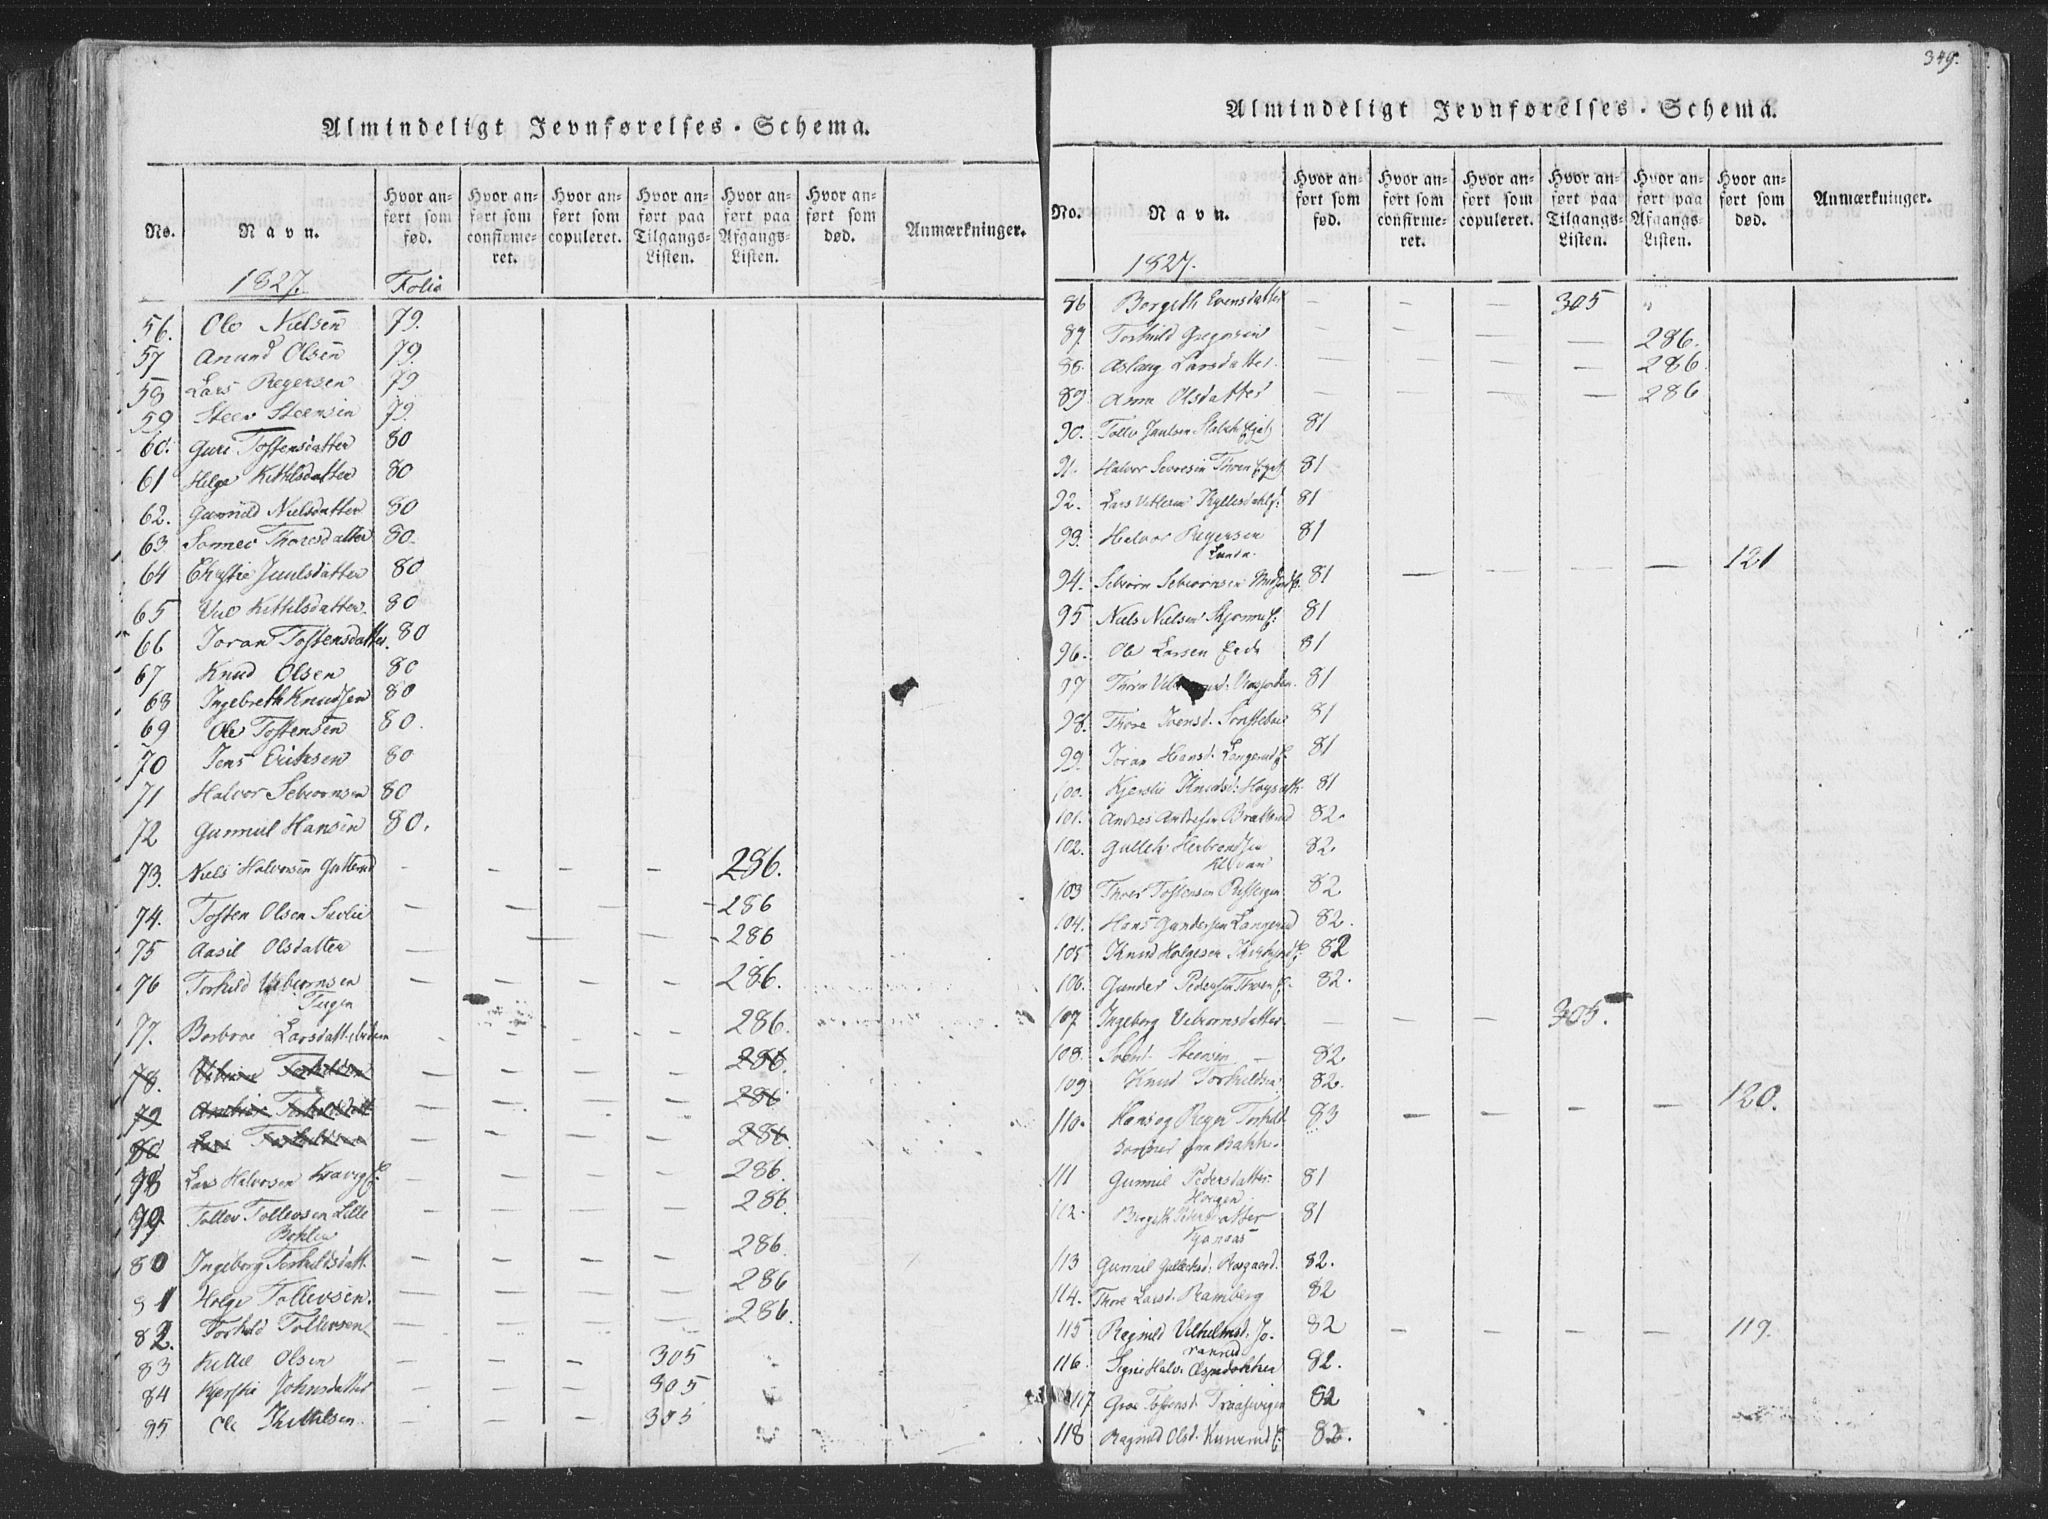 Almindeligt Jevnførelses-Schema.
No. Navn. Hvor anført som fød. Hvor anført som confirmeret. Hvor anført som copuleret. Hvor anført paa Tilgangs-Listen. Hvor anført paa Afgangs-Listen. Hvor anført som død. Anmærkninger.
1827. Folio
56. Ole Nielsen 79.
57 Anund Olsen 79.
58 Lars Regersen 79
59 Steen Steensen 79.
60. Guri Tostensdatter 80
61 Helge Kittilsdatter 80
62. Gunnild Nielsdatter 80
63 Sonnev Thoresdatter 80.
64 Christie Juulsdatter 80
65 Kittilsdatter. 80
66 Joran Tostensdatter. 80
67 Knud Olsen 80
68 Ingebreth Knudsen 80
69 Ole Tostensen 80.
70 Jens Eriksen 80
71 Halvor Sebiornsen 80
72 Gunniul Hansen 80.
73. Niels Halvorsen — — — — 286.
74. Tosten Olsen — — — - 286
75 Aasil Olsdatter — — — - 286
76 Torkild Vebiornsen — — — — 286.
77. Borbroe Larsdatt: ibidem - - - 286.
78. Torkildsen — — — — 286.
79 Torkildsdatt — — — — 286
80 Lars Torkildsen — — — — 286.
78 Lars Halvorsen Kravig E: — — — — 286.
79. Tollev Tollevsen Lille — — — — 286.
80 Ingeborg Torkildsdatt. — — — — 286.
81 Helge Tollevsen. — — — — 286
82. Torkild Tollevsen — — — — 286.
83 Kittil Olsen — — - 305
84 Kjersti Johnsdatter — — - 305
85 Ole Kittilsen. — — - 305
349.
Almindeligt Jevnførelses-Schema.
No. Navn. Hvor anført som fød. Hvor anført som confirmeret. Hvor anført som copuleret. Hvor anført paa Tilgangs-Listen. Hvor anført paa Afgangs-Listen. Hvor anført som død. Anmærkninger.
1827.
86 Bergith Evensdatter — — — 305
87. Torkild Gregersen — — — — 286.
88. Aslaug Larsdatter. — — — — 286.
89 Anna Olsdatter — — — — 286
90. Tollev Juulsen 81
91. Halvor Seversen Thoen Eget 81
92. Lars 81
93. Halvor Regersen 81
Lunda.
94. Sebiorn Sebiornsen 81 — — — — 121
95 Niels Nielsen E: 81
96. Ole Larsen 81
97 81
98. Thore Ivensd. 81
99. Joran Hansd. Langerud E 81
100. Kjersti Knudsd: 81
101. Andres Andersen Bratterud 82.
102. Gullek Herbrandsen 82.
103 Thoer Tostensen 82.
104. Hans Gundersen Langerud 82.
105 Knud Holgesen E. 82
106. Gunder Pedersen Thoen E. 82.
107 Ingeborg Vebiornsdatter — — — 305.
108. Svend Steensen — 82.
109 Knud Torkildsen 82.
110. Hans og Reger Torkild- 83 — — — — 120.
sønner fra Bakke.
111 Gunnil Pedersdatter 81
Horgen
112. Bergith Pedersdatter 81
113 Gunnil Gulleksd: 82.
114. Thore Larsd. Ramberg 82
115 Ragnild Vilhelmsd. Jo- 82 — — — — 119.
ranrud
116. Signe Halv. 82.
117 Groe Tostensd. 82
118 Ragnild Olsd. E: 82.